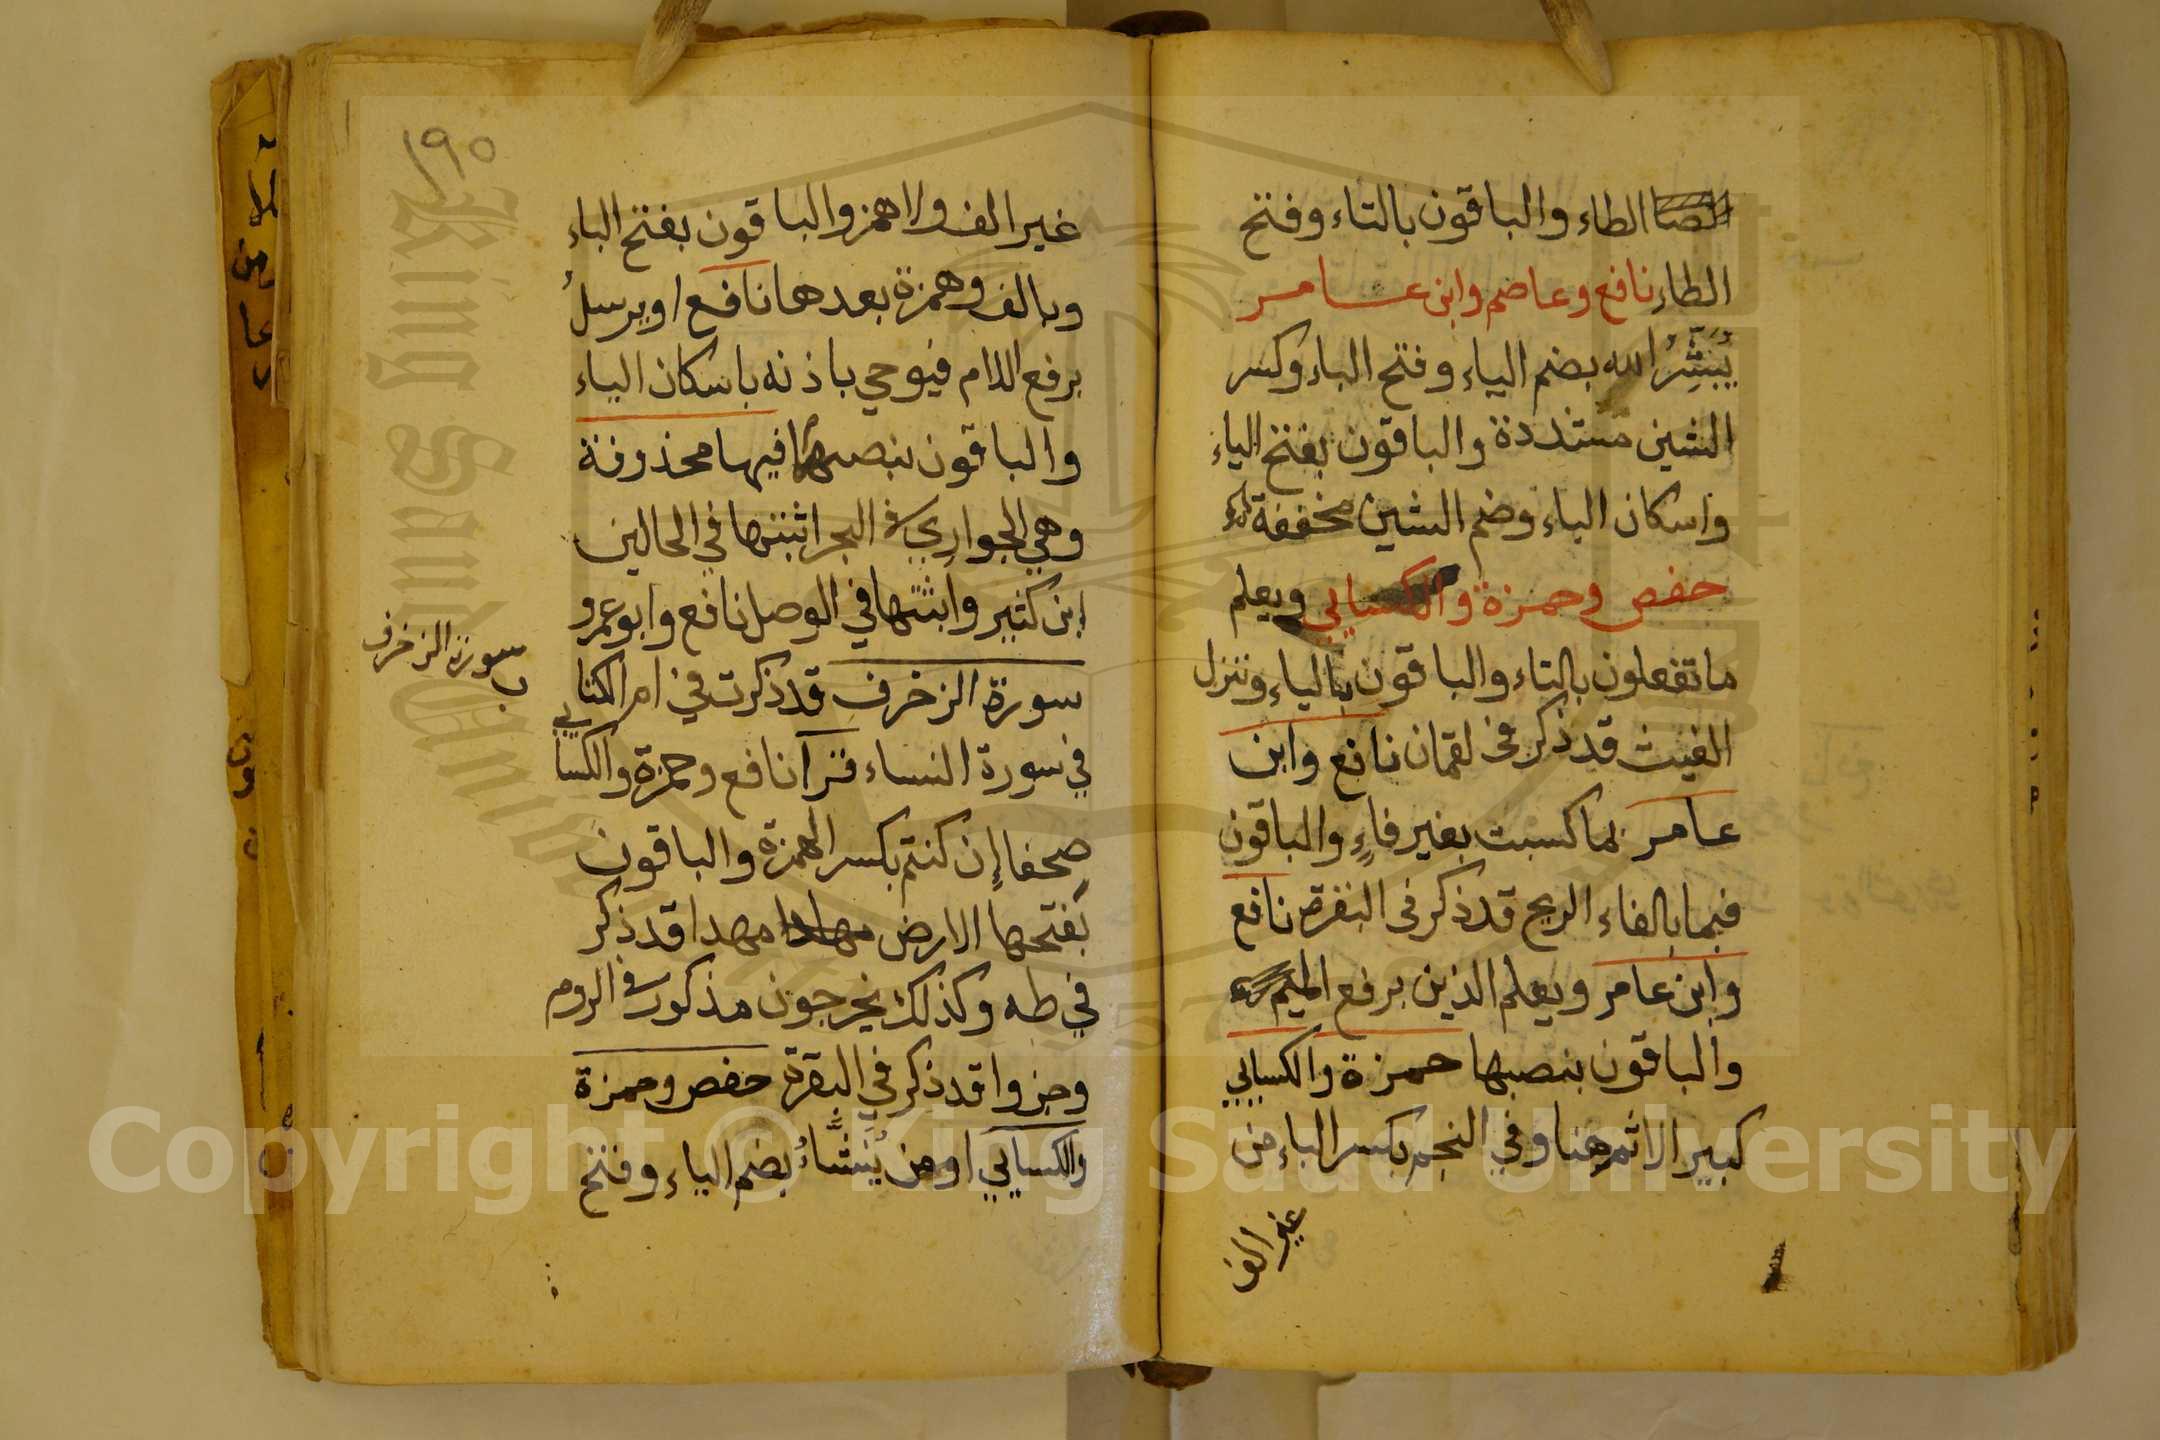 الطاء والباقون بالتاء وفتح
الطاء نافع وعاصم وابن عامر
يُبَشِّرُ الله بضم الياء وفتح الباء وكسر
الشين مشددة والباقون بفتح الياء
واسكان الباء وضم الشين مخففة
حفص وحمزة والكسايي ويعلم
ما تفعلون بالتاء والباقون بالياء وننزل
الغيث قد ذكر في لقمان نافع وابن
عامر بما كسبت بغير فاءٍ والباقون
فبما بالفاء الريح قد ذكر في البقرة نافع
وابن عامر ويعلم الذين برفع الميم
والباقون بنصبها حمزة والكسايي
كبير الاثم هنا وفي النجم بكسر الباء من
غير الف
١٩٥
غير الف ولا همز والباقون بفتح الباء
وبالف وهمزة بعدها نافع او يرسلُ
برفع اللام فيوحي باذنه باسكان الياء
والباقون بنصبهما فيها محذوفة
وهي الجواري في البحر اثبتها في الحالين
ابن كثير واثبتها في الوصل نافع وابو عمرو
سورة الزخرف قد ذكرت في ام الكتاب
سورة الزخرف
في سورة النساء قرا نافع وحمزة والكسايي
صحفا إن كنتم بكسر الهمزة والباقون
بفتحها الارض مهادا مهدا قد ذكر
في طه وكذلك يخرجون مذكور في الروم
وجزوا قد ذكر في البقرة حفص وحمزة
والكسايي اومن يُنَشَّاءُ بضم الياء وفتح
Copyright © King Saud University
King Saud University
1957